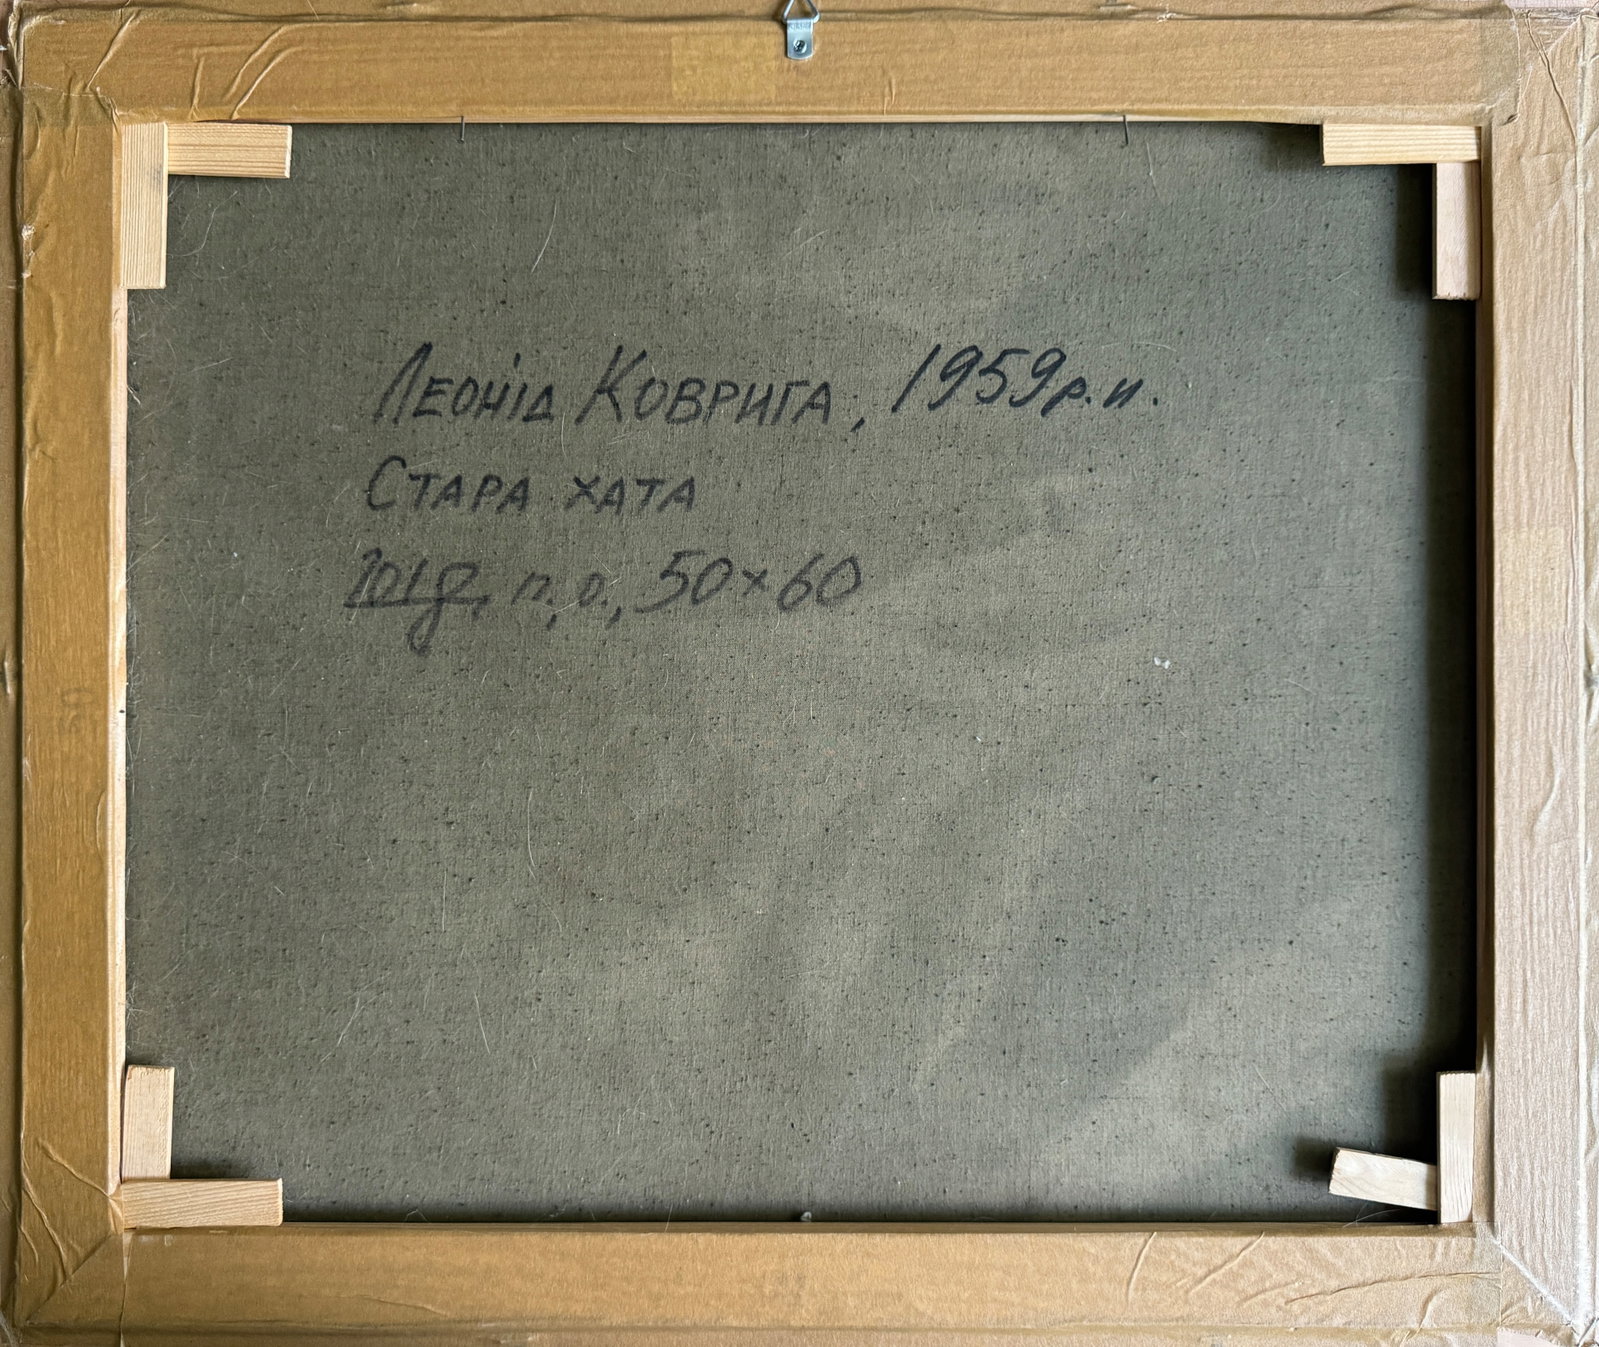 Леонід Коврига, 1959 р.н.
Стара хата
п., о., 50×60